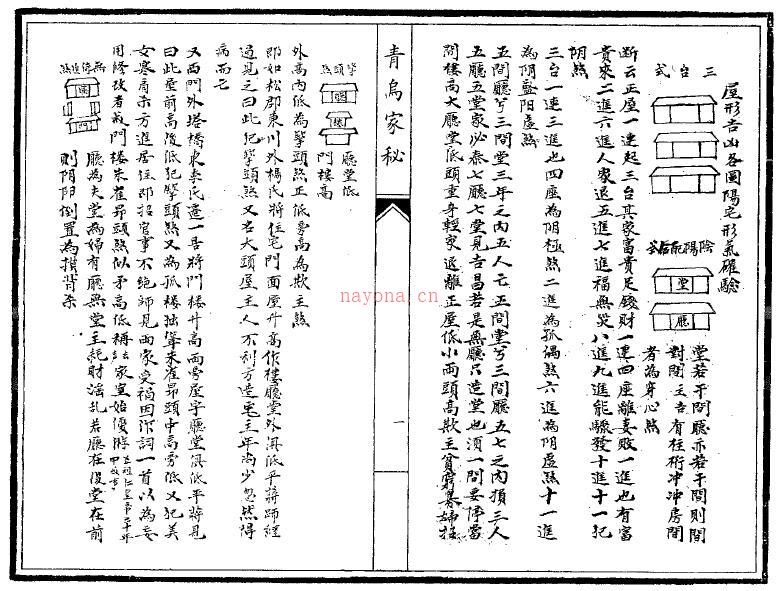 屋形吉凶各圖陽宅形氣確驗
三台式
斷云正屋一連起三台其家富貴足錢財一連四座離妻敗一進也有富
貴來二進六進人家退五進七進福無災八進九進能驟發十進十一犯
陰煞
三台一連三進也四座為陰極煞二進為孤偶煞六進為陰虛煞十一進
為陰盛陽虛煞
陰陽
堂
廳
堂若干間廳亦若干間則間
對間主吉有柱術冲冲房間
者為穿心煞
五間廳兮三間堂三年之內五人亡五間堂兮三間廳五七之內損三人
五廳五堂家必泰七廳七堂見吉昌若是無廳只造堂也須一間要停當
門樓高大廳堂低頭重身輕家退離正屋低小兩頭高欺主貧窮寡婦招
青烏家秘
一
擎頭煞
廳堂低
門樓高
外高內低為擎頭煞正低旁高為欺主煞
即如松郡東川外楊氏將住宅門面屋升高作樓廳堂外俱低平蔣師經
過見之曰此犯擎頭煞又名大頭屋主人不利方造完主年尚少忽然得
病而亡
又西門外塔橋東李氏造一居將門樓升高而旁屋字廳堂俱低平蔣見
曰此屋前高後低犯擎頭煞又為孤樓獨聳朱雀昂頭中高旁低又犯美
女寒肩未方進居住即招官事不絕師見兩家受禍因作詞一首以為妄
用修改者戒門樓朱雀昂頭煞似矛高低稱法家宜始優游
廳為夫堂為婦有廳無堂主耗財淫亂若廳在後堂在前
則陰陽倒置為撗背煞